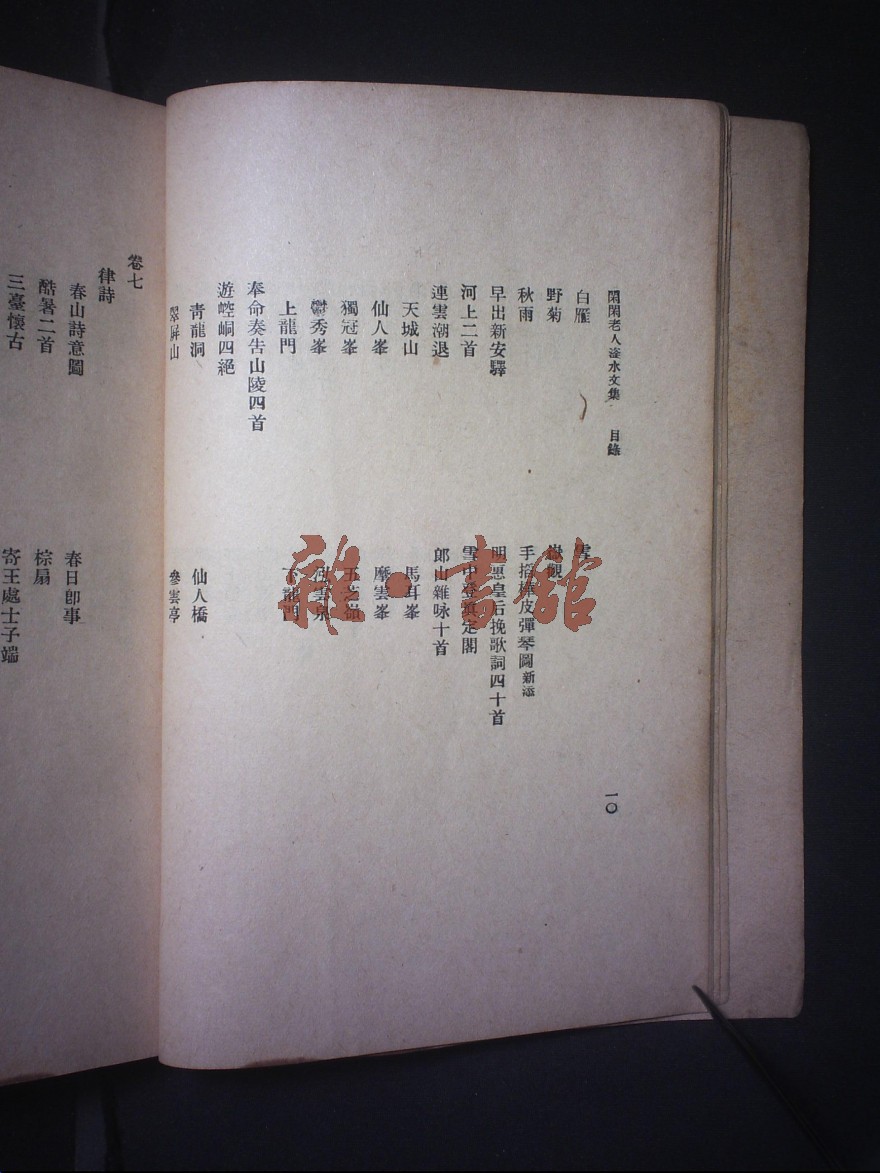 閑閑老人滏水文集　目錄　一〇
白雁　雪
野菊　觀
秋雨　手搭皮彈琴圖新添
早出新安驛　明惠皇后挽歌詞四十首
河上二首　雪中登真定閣
連雲潮退　郎山雜咏十首
天城山　馬耳峯
仙人峯　摩雲峯
獨冠峯　玉
鬱秀峯　雲泉
上龍門　下龍門
奉命奏告山陵四首
遊崆峒四絕
青龍洞　仙人橋
翠屏山　參雲亭
卷七
律詩
春山詩意圖　春日卽事
酷暑二首　棕扇
三臺懷古　寄王處士子端
雜·書館